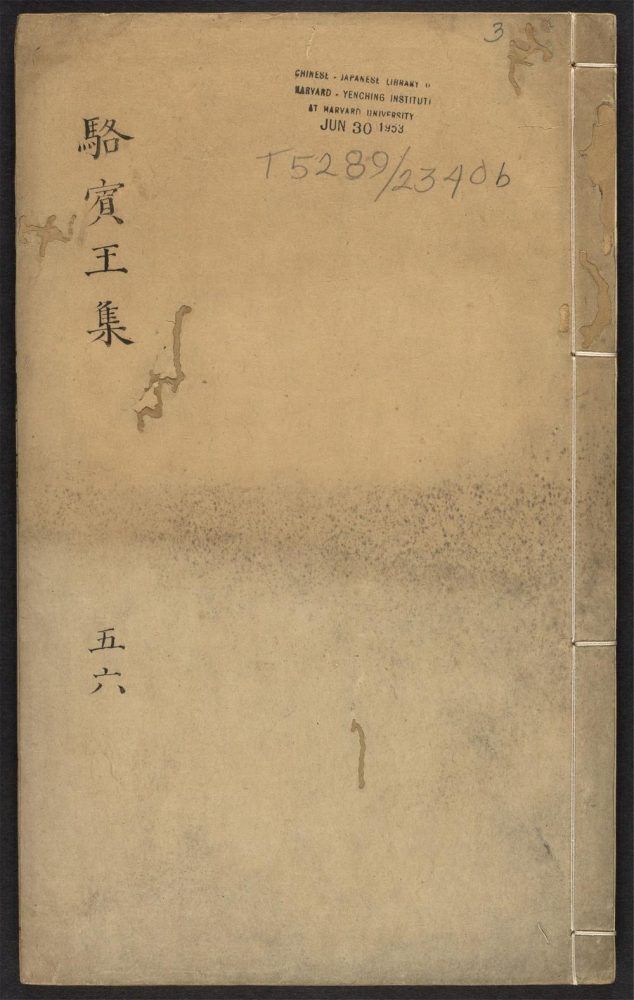 3
CHINESE - JAPANESE LIBRARY
HARVARD - YENCHING INSTITUTE
AT HARVARD UNIVERSITY
JUN 30 1953
T5289/2340b
駱賔王集
五六